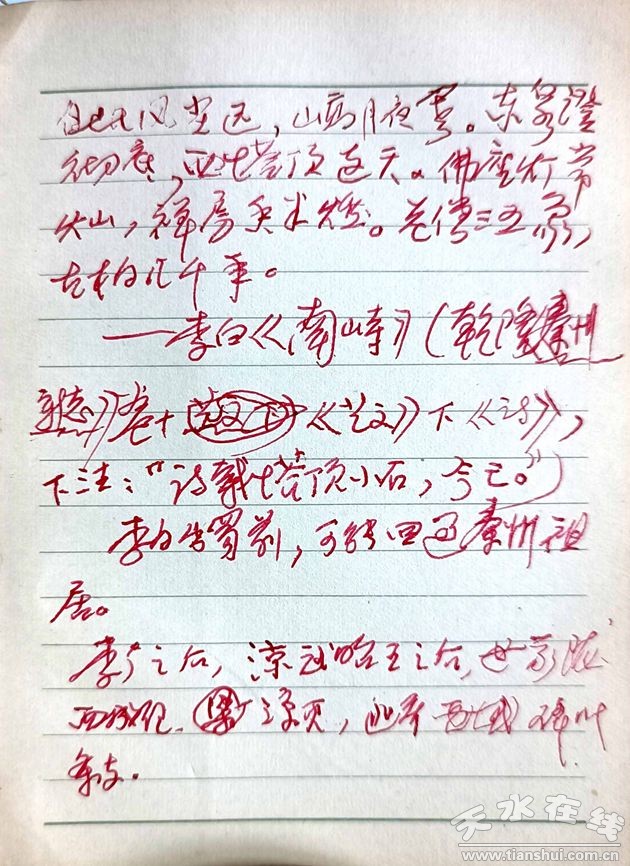 自此风尘远，山高月夜寒。东泉澄
彻底，西塔顶连天。佛座灯常
灿，禅房香半燃。老僧三五众，
古柏几千年。
——李白《南山寺》（乾隆秦州
新志》卷十《艺文》下《诗》，
下注："诗载塔顶小石，今亡。"）
李白出蜀前，可能回过秦州祖
居。
李广之后，凉武昭王之后，世家陇
西成纪。
条支。
天水在线
www.tianshui.com.cn